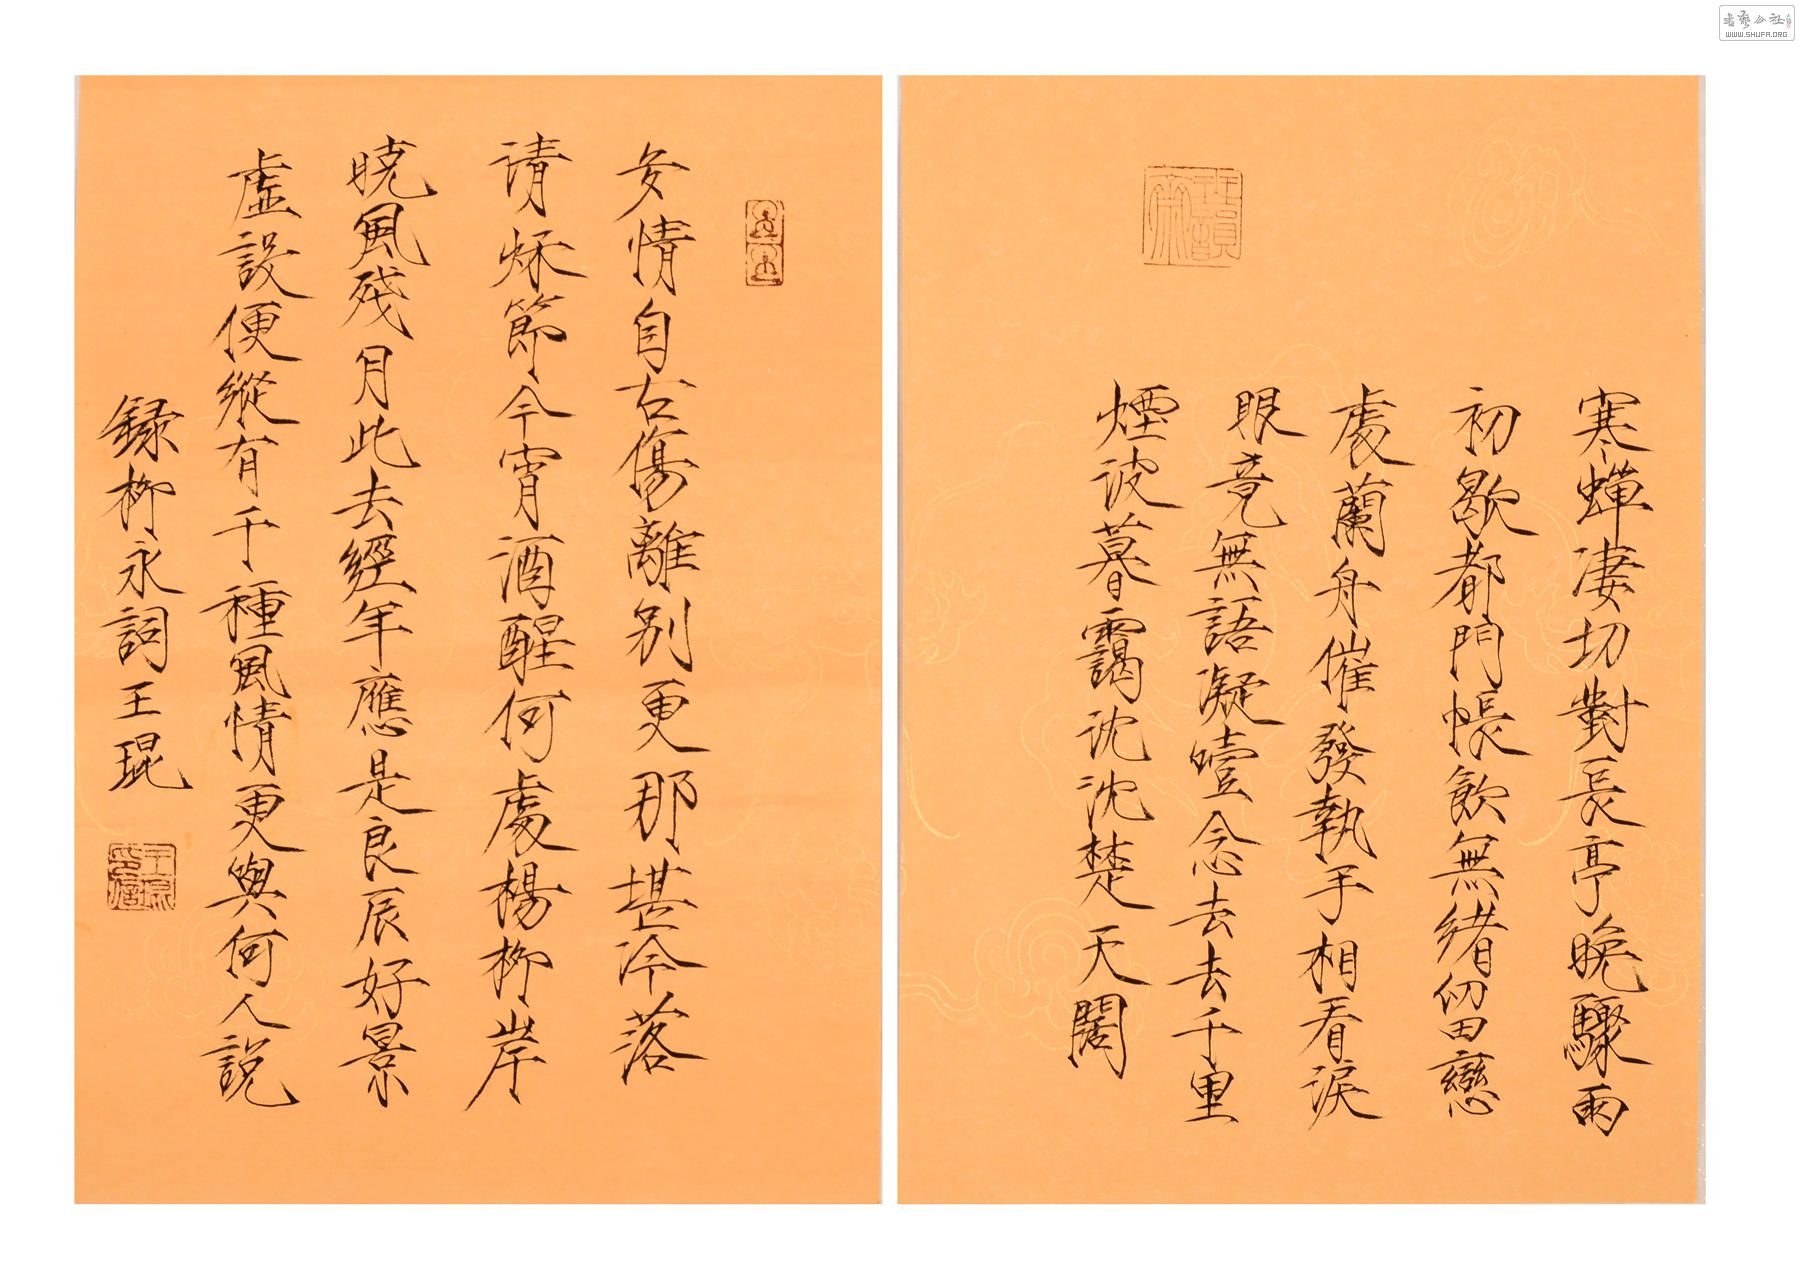 寒蟬凄切對長亭晚驟雨
初歇都門帳飲無緒留戀
處蘭舟催發執手相看淚
眼竟無語凝噎念去去千里
煙波暮靄沈沈楚天闊
多情自古傷離別更那堪冷落
清秌節今宵酒醒何處楊柳岸
曉風殘月此去經年應是良辰好景
虛設便縱有千種風情更與何人說
錄柳永詞王琨
王琨印信
书艺公社
WWW.SHUFA.ORG